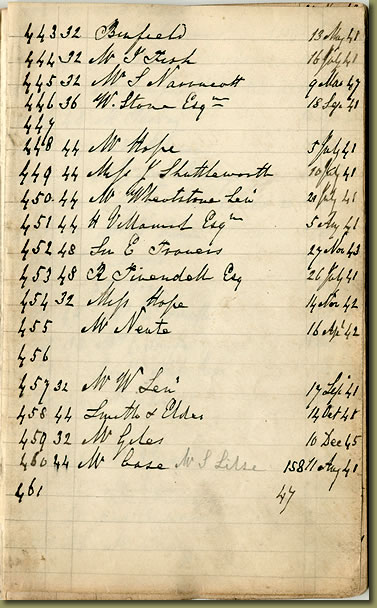 443 32 Binfield 13 May 41
444 32 Mr T Fish 16 July 41
445 32 Mr S Narracott 9 Mar 47
446 36 W. Stone Esqre 18 Sep 41
447
448 44 Mr Hope 5 July 41
449 44 Miss J Shuttleworth 10 Jul 41
450 44 Mr Wheatstone Senr 21 July 41
451 44 H V Esqre 5 Aug 41
452 48 Sir E Francis 27 Nov 43
453 48 R Fivendell Esq 26 July 41
454 32 Miss Hope 14 Nov 42
455 Mr Neate 16 Apl 42
456
457 32 Mr W Senr 17 Sep 41
458 44 Smith & Elder 14 Oct 48
459 32 Mr Giles 10 Dec 45
460 44 Mr Case Mr S 158 11 Aug 41
461 47